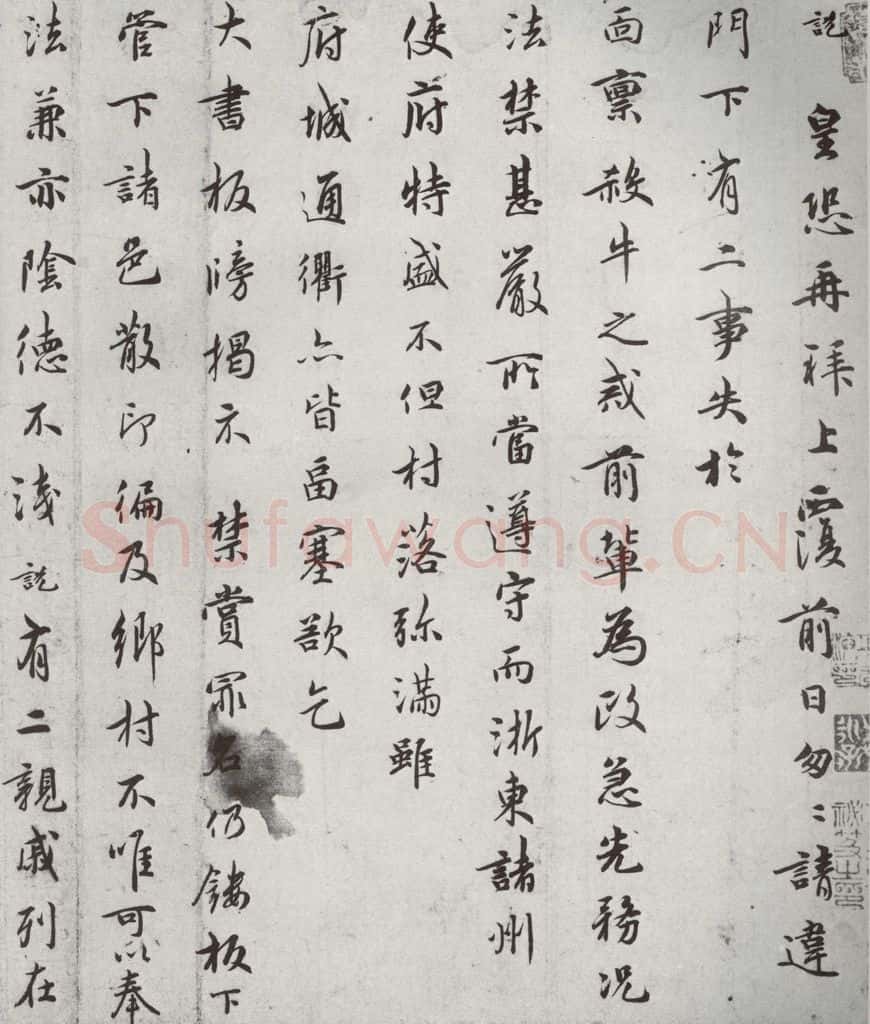 說皇恐再拜上覆前日匆〻請違
門下有二事失於
面稟殺牛之戒前輩為政急先務况
法禁甚嚴所當遵守而浙東諸州
使府特盛不但村落弥滿雖
府城通衢亦皆畐塞欲乞
大書板牓揭示禁賞罪名仍鏤板下
管下諸邑散印徧及鄉村不唯可以奉
法兼亦陰德不淺說有二親戚列在
Shufawang.CN